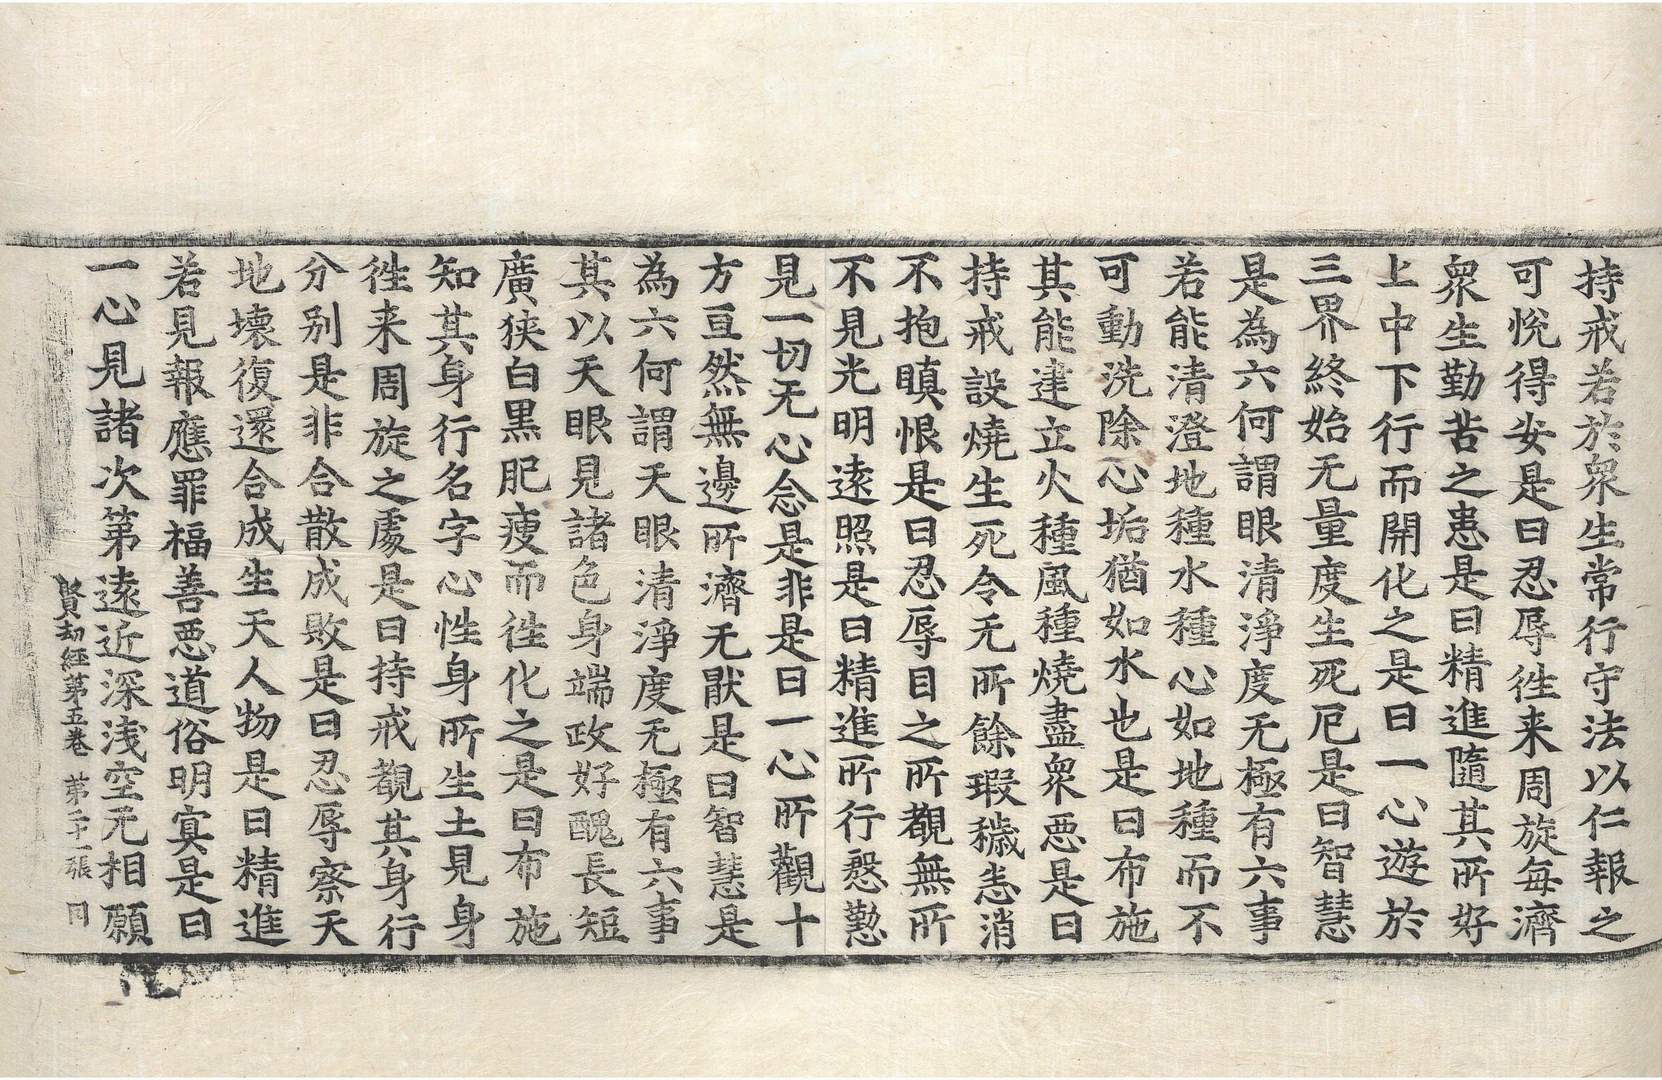 持戒若於衆生常行守法以仁報之
可悅得安是曰忍辱徃来周旋每濟
衆生勤苦之患是曰精進隨其所好
上中下行而開化之是曰一心遊於
三界終始无量度生死厄是曰智慧
是為六何謂眼清淨度无極有六事
若能清澄地種水種心如地種而不
可動洗除心垢猶如水也是曰布施
其能建立火種風種燒盡衆惡是曰
持戒設燒生死令无所餘瑕穢恙消
不抱瞋恨是曰忍辱目之所覩無所
不見光明遠照是曰精進所行慇懃
見一切无心念是非是曰一心所觀十
方亘然無邊所濟无猒是曰智慧是
為六何謂天眼清淨度无極有六事
其以天眼見諸色身端政好醜長短
廣狹白黑肥瘦而徃化之是曰布施
知其身行名字心性身所生土見身
徃来周旋之處是曰持戒觀其身行
分别是非合散成敗是曰忍辱察天
地壞復還合成生天人物是曰精進
若見報應罪福善惡道俗明寘是曰
一心見諸次第遠近深浅空无相願
賢劫經第五卷 第二十張 同